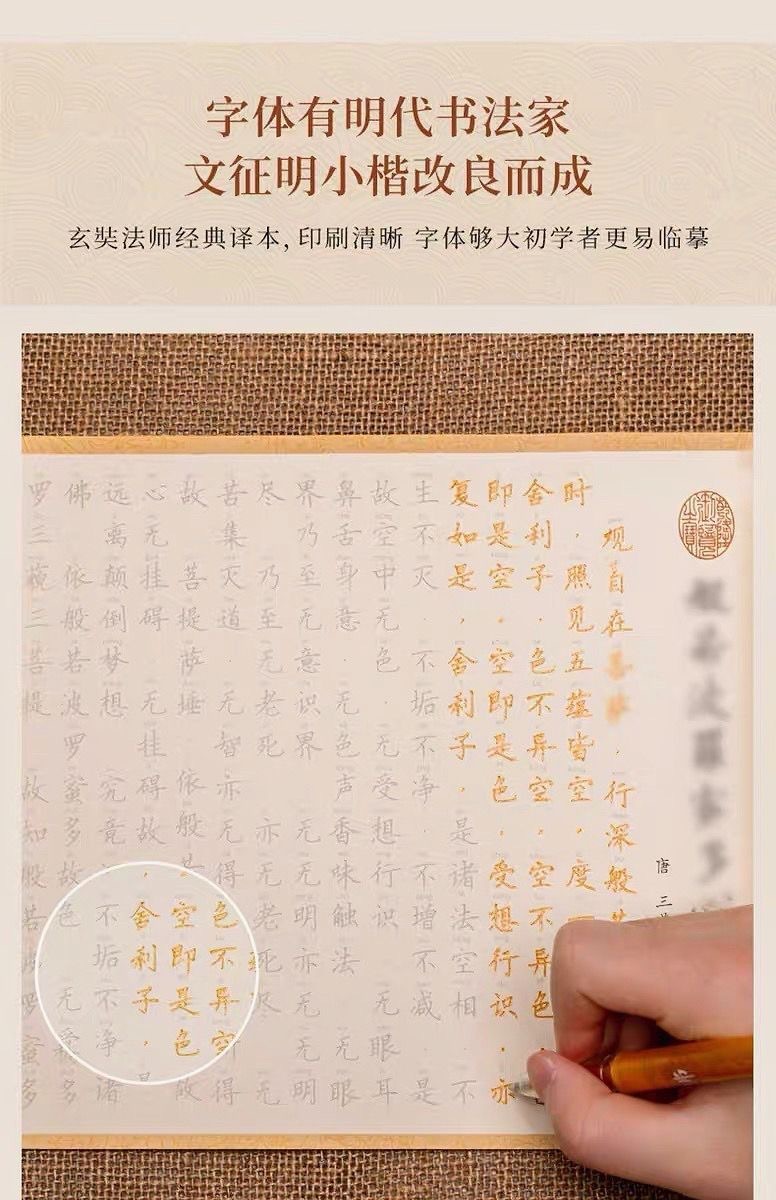 字体有明代书法家
文征明小楷改良而成
玄奘法师经典译本, 印刷清晰 字体够大初学者更易临摹
乾隆御覽之寶
唐 三
观自在菩萨，行深般若
时，照见五蕴皆空，度一
舍利子，色不异空，空不异色
即是空。空即是色，受想行识，亦
复如是，舍利子，是诸法空相，不
生不灭，不垢不净，不增不减，是
故空中无色，无受想行识，无眼耳
鼻舌身意，无色声香味触法，无眼
界乃至无意识界 无无明亦无无明
尽 乃至无老死 亦无老死尽 无
苦集灭道 无智亦无得 得
故 菩提萨埵 依般若 故
心无挂碍 无挂碍故
远离颠倒梦想 究竟
佛 依般若波罗蜜多故 多
罗三藐三菩提 故知般若波罗蜜多
色不异空
空即是色
舍利子，
不垢不净
色 无